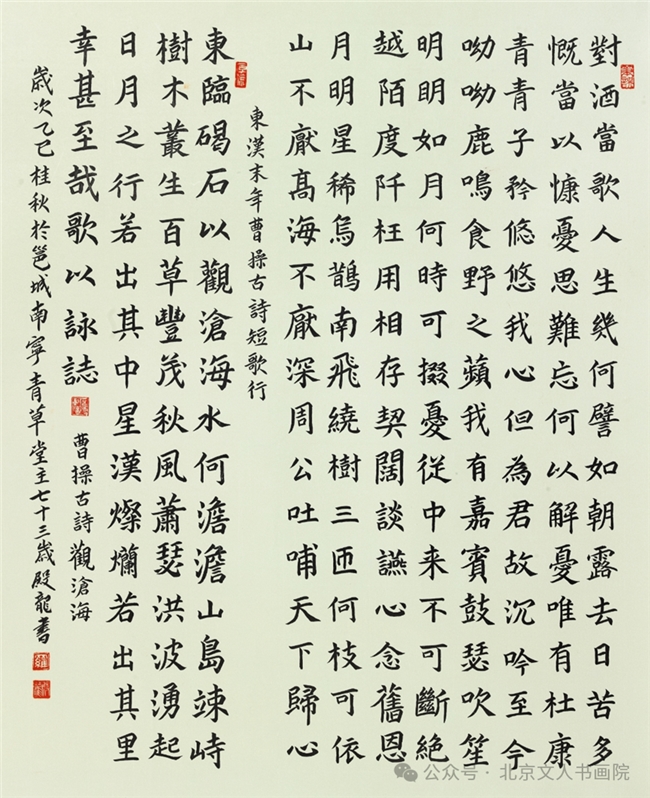 對酒當歌人生幾何譬如朝露去日苦多
慨當以慷憂思難忘何以解憂唯有杜康
青青子矜悠悠我心但為君故沉吟至今
呦呦鹿鳴食野之蘋我有嘉賓鼓瑟吹笙
明明如月何時可掇憂從中来不可斷絕
越陌度阡枉用相存契闊談讌心念舊恩
月明星稀烏鵲南飛繞樹三匝何枝可依
山不厭高海不厭深周公吐哺天下歸心
東漢末年曹操古詩短歌行
東臨碣石以觀滄海水何澹澹山島竦峙
樹木叢生百草豐茂秋風蕭瑟洪波湧起
日月之行若出其中星漢燦爛若出其里
幸甚至哉歌以詠誌 曹操古詩觀滄海
歲次乙巳桂秋於邕城南寧青草堂主七十三歲殿龍書
公众号·北京文人书画院